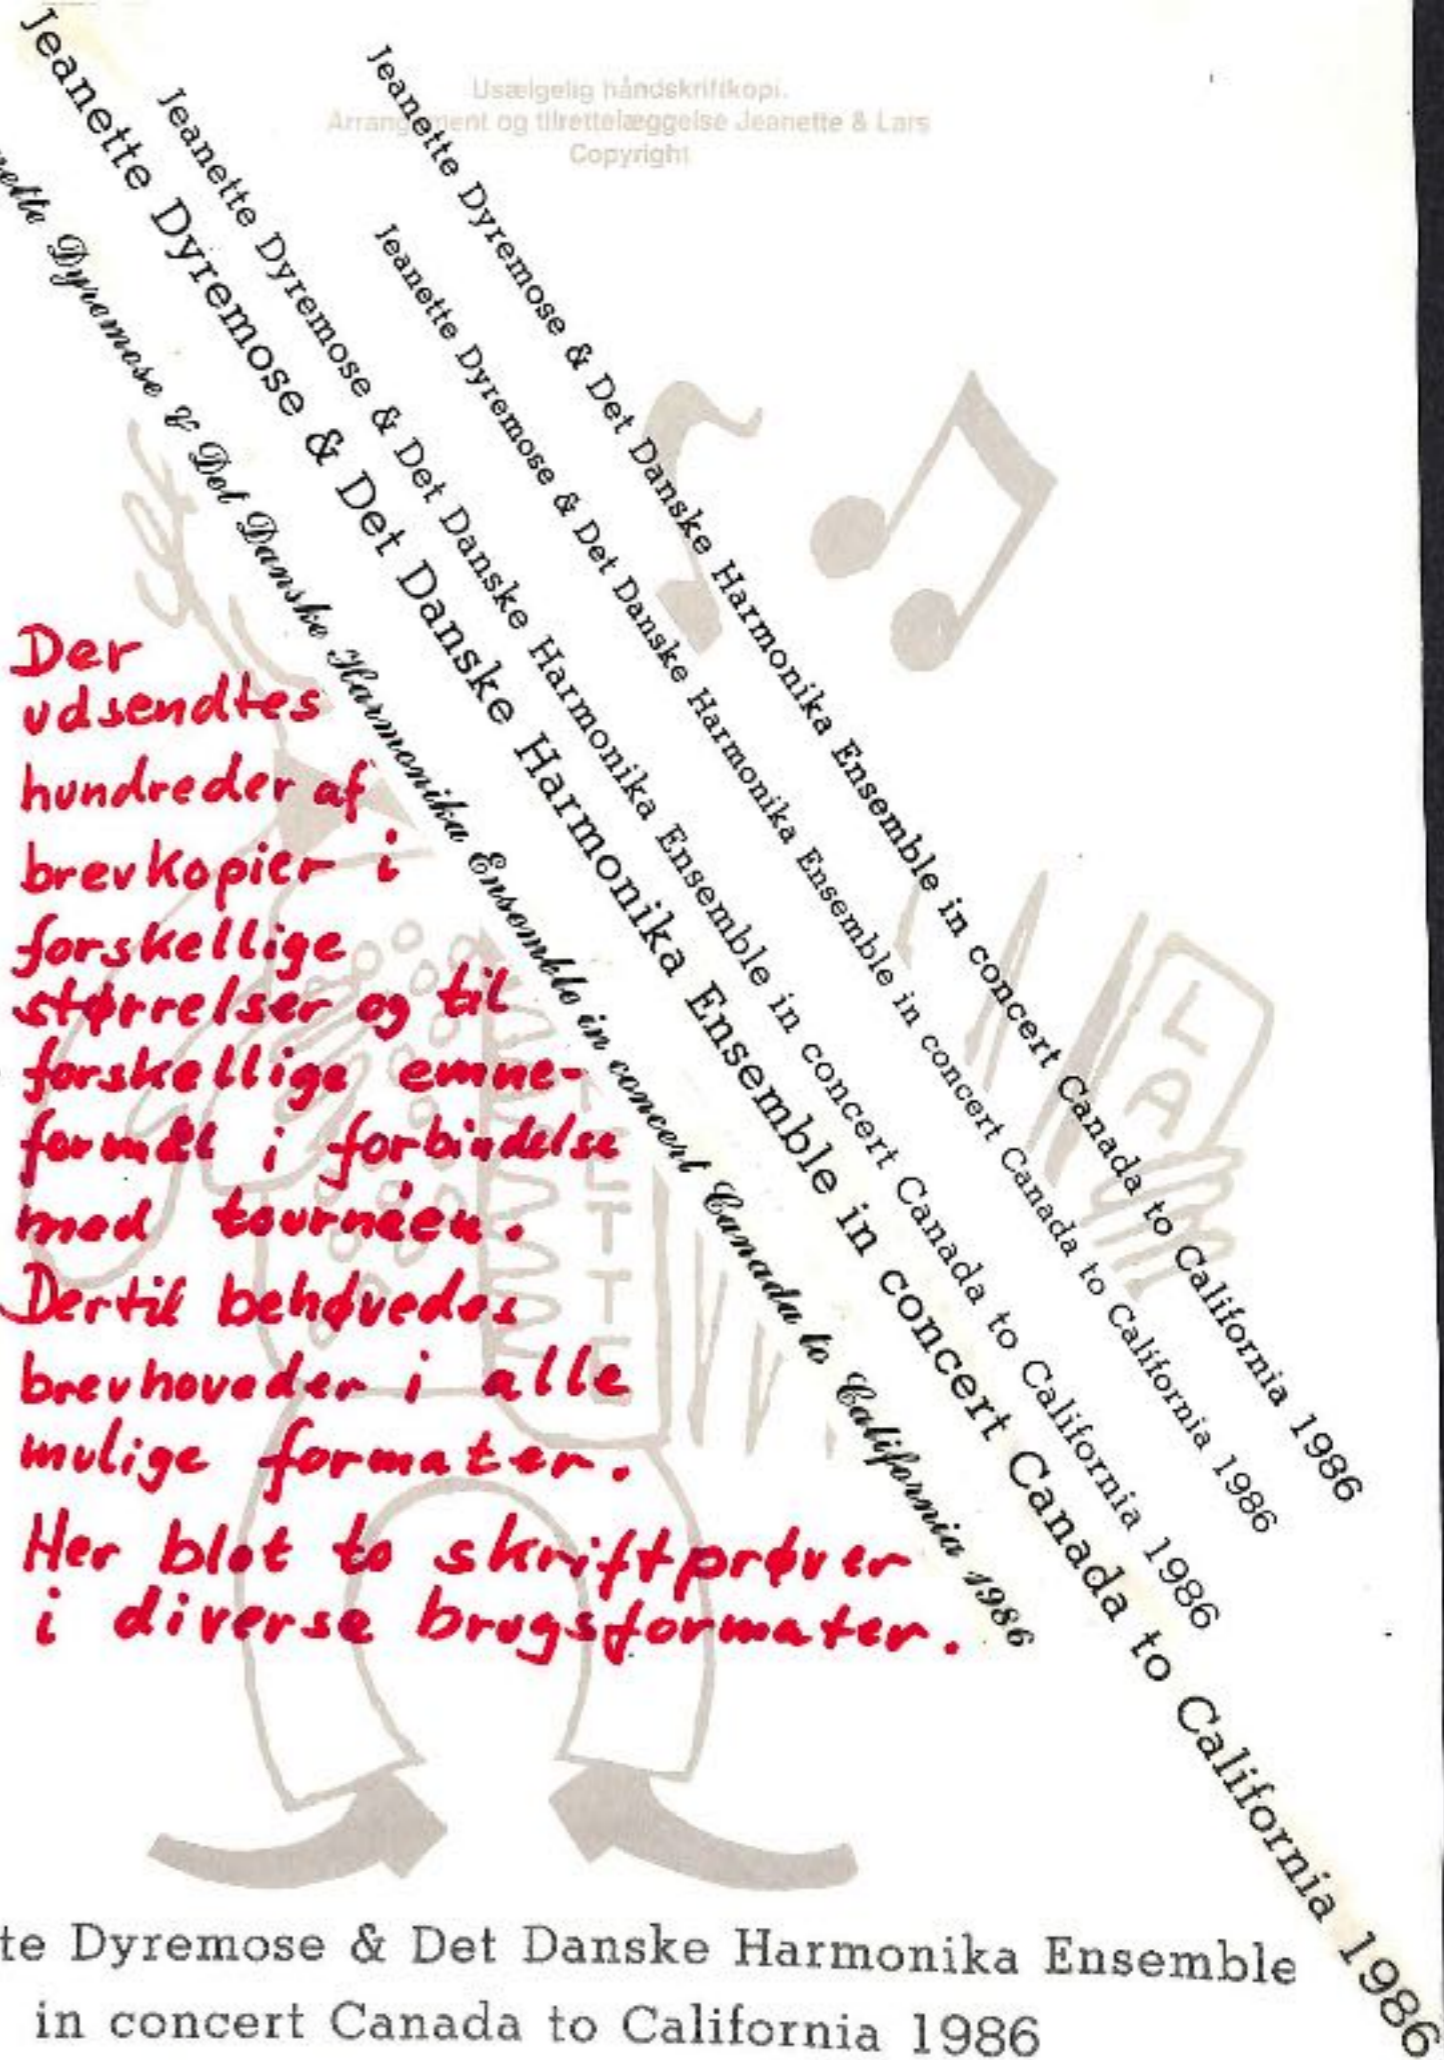 Usælgelig håndskriftkopi.
Arrangement og tilrettelæggelse Jeanette & Lars
Copyright
Jeanette Dyremose & Det Danske Harmonika Ensemble in concert Canada to California 1986
Jeanette Dyremose & Det Danske Harmonika Ensemble in concert Canada to California 1986
Jeanette Dyremose & Det Danske Harmonika Ensemble in concert Canada to California 1986
Jeanette Dyremose & Det Danske Harmonika Ensemble in concert Canada to California 1986
Dyremose & Det Danske Harmonika Ensemble in concert Canada to California 1986
Der
udsendtes
hundreder af
brevkopier i
forskellige
størrelser og til
forskellige emne-
formål i forbindelse
med tournéen.
Dertil behøvedes
brevhoveder i alle
mulige formater.
Her blot to skriftprøver
i diverse brugsformater.
LA
ETTE
te Dyremose & Det Danske Harmonika Ensemble
in concert Canada to California 1986